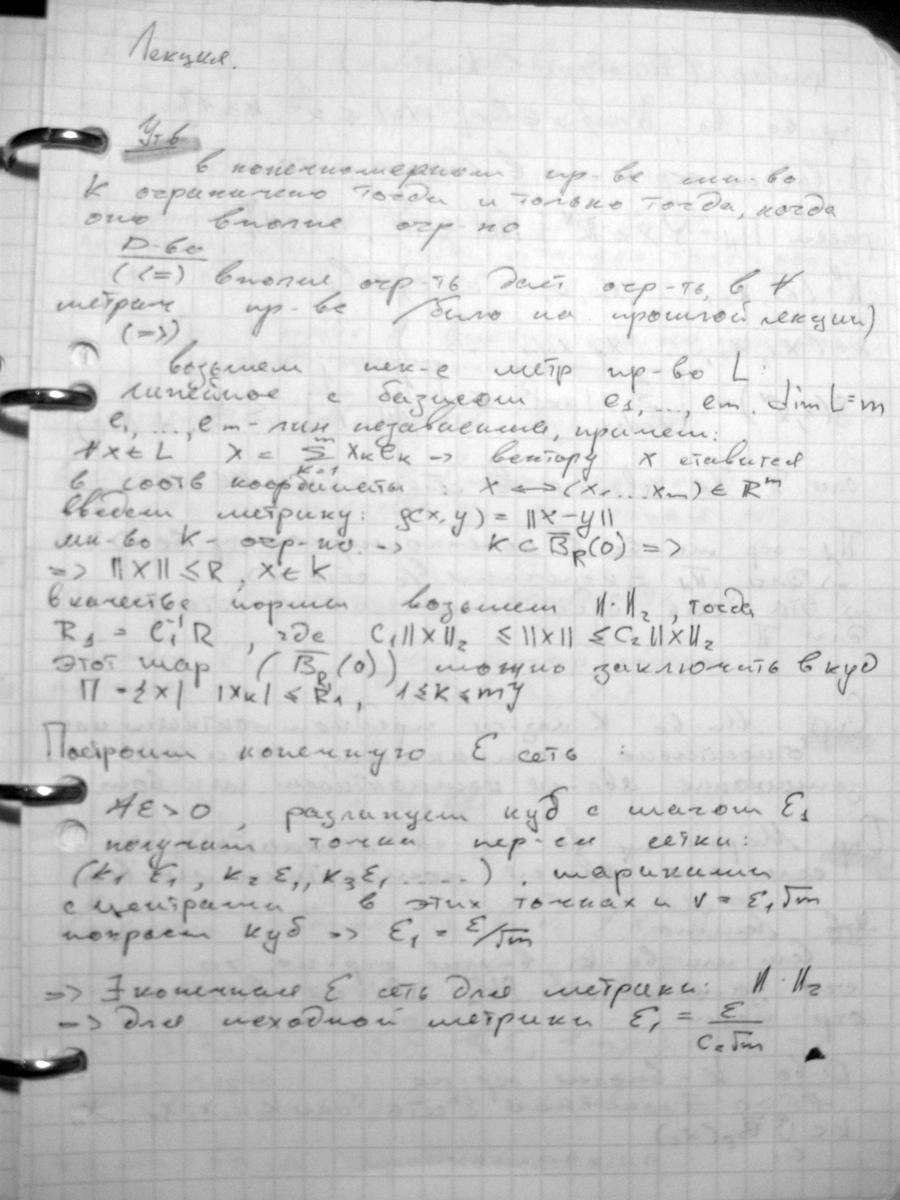 Лекция.
Утв
в конечномерном пр-ве мн-во
К ограничено тогда и только тогда, когда
оно вполне огр-но
Д-во
(<=) вполне огр-ть даёт огр-ть, в ∀
метрич пр-ве (было на прошлой лекции)
(=>)
возьмем нек-е метр пр-во L:
линейное с базисом e₁,...,eₘ. dim L=m
e₁,...,eₘ - лин независимы, причем:
∀x∈L x = ∑ₖ₌₁ᵐ xₖeₖ -> вектору x ставится
в соотв координаты: x <-> (x₁...xₘ) ∈ Rᵐ
введем метрику: ρ(x,y) = ||x-y||
мн-во К - огр-но -> K ⊂ B̅_R(0) =>
=> ||x|| ≤ R, x∈K
в качестве нормы возьмем ||·||₂, тогда
R₁ = C₁⁻¹R, где C₁||x||₂ ≤ ||x|| ≤ C₂||x||₂
Этот шар (B̅_R₁(0)) можно заключить в куб
П = {x| |xₖ| ≤ R₁, 1≤k≤m}
Построим конечную ε сеть:
∀ε>0, разлинуем куб с шагом ε₁
получим точки пер-ся сетки:
(k₁ε₁, k₂ε₁, k₃ε₁.....), шариками
с центрами в этих точках и r = ε₁√m
покроем куб => ε₁ = ε/√m
=> ∃ конечная ε сеть для метрики: ||·||₂
-> для исходной метрики ε₁ = ε/(C₂√m)